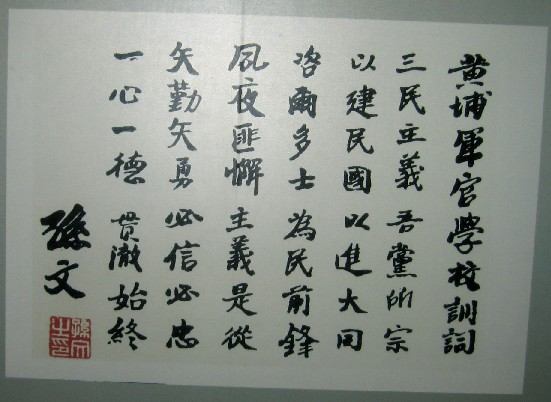 黄埔軍官學校訓詞
三民主義 吾黨所宗
以建民國 以進大同
咨爾多士 為民前鋒
夙夜匪懈 主義是從
矢勤矢勇 必信必忠
一心一德 貫澈始終
孫文
孫文之印